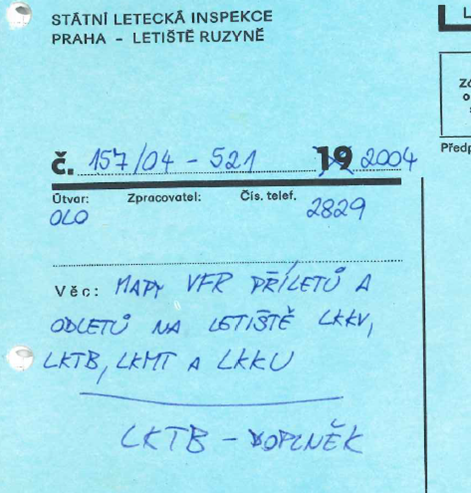 STÁTNÍ LETECKÁ INSPEKCE
PRAHA - LETIŠTĚ RUZYNĚ
L
Zá
o
Předp
č. 157/04 - 521 19 2004
Útvar: Zpracovatel: Čís. telef.
OLO 2829
Věc: MAPY VFR PŘÍLETŮ A
ODLETŮ NA LETIŠTĚ LKKV,
LKTB, LKMT A LKKU
LKTB - DOPLNĚK